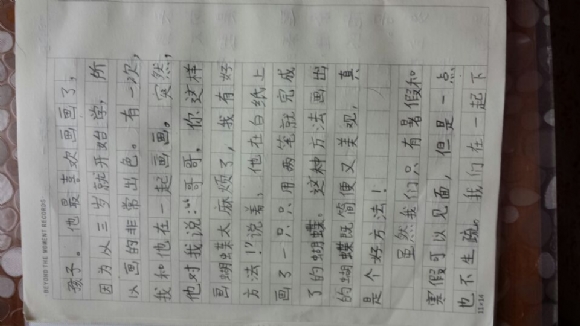 孩子。他最喜欢画画了，
因为以三岁就开始学，所
以画的非常出色。有一次，
我和他在一起画画。突然，
他对我说：“哥哥。你这样
画蝴蝶太麻烦了，我有好
方法！”说着，他在白纸上
画了一只只用两笔就完成
了的蝴蝶。这种方法画出
的蝴蝶既简便又美观，真
是个好方法！
虽然我们只有暑假和
寒假可以见面，但是一点
也不生疏。我们在一起下